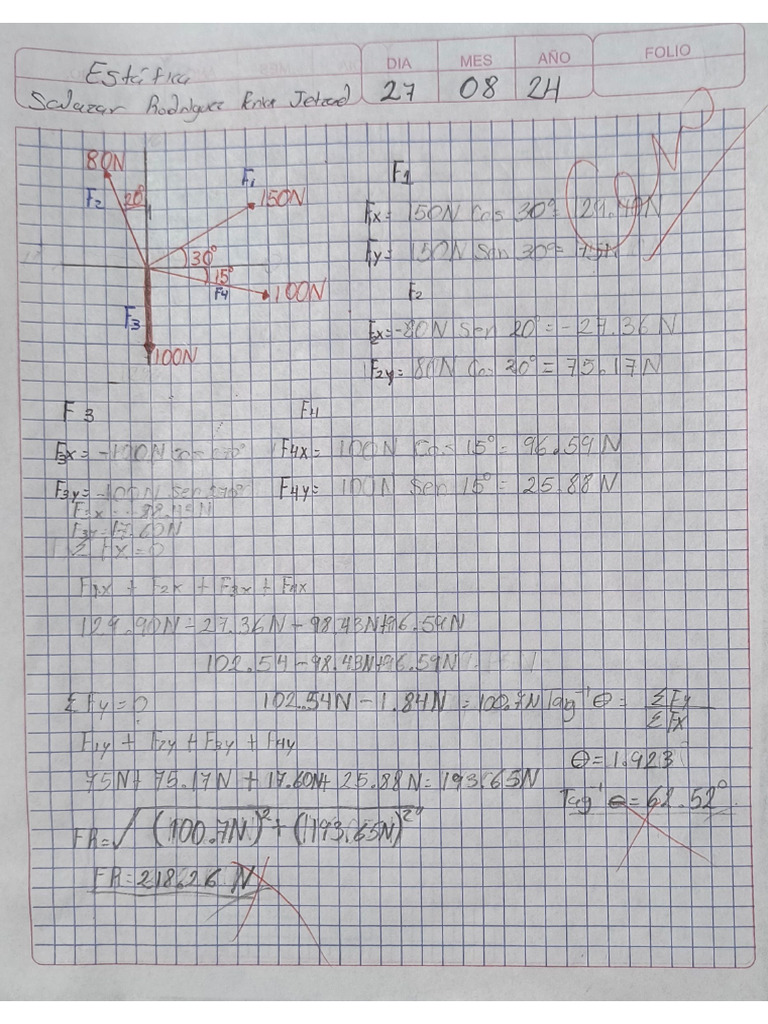 DIA MES AÑO FOLIO
Estática
Salazar Rodriguez 27 08 24
80N
F2 20° F1 150N
30°
15°
F4 100N
F3
100N
F1
Fx= 150N Cos 30°= 129.90N
Fy= 150N Sen 30°= 75N
F2
F2x=-80N Sen 20°=-27.36N
F2y=80N Cos 20°=75.17N
F3 F4
F3x= -100N cos 270° F4x= 100N Cos 15°= 96.59N
F3y=-100N sen 270° F4y= 100N Sen 15°= 25.88N
F3y=17.60N
Σ Fx=0
F1x + F2x + F3x + F4x
129.90N-27.36N-98.43N+96.59N
102.54-98.43N+96.59N
ΣFy=0 102.54N-1.84N=100.7N Tag⁻¹ θ= ΣFy
ΣFx
F1y + F2y + F3y + F4y
θ=1.923
75N+75.17N+17.60N+25.88N=193.65N
Tag⁻¹ θ=62.52°
FR=√(100.7N)²+(193.65N)²
FR=218.26 N